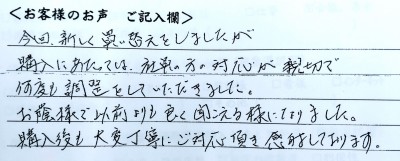 ＜お客様のお声　ご記入欄＞
今回、新しく買い替えをしましたが
購入にあたっては、社製の方の対応が親切で
何度も調整をしていただきました。
お蔭様で以前よりも良く聞こえる様になりました。
購入後も大変丁寧にご対応頂き感謝しております。